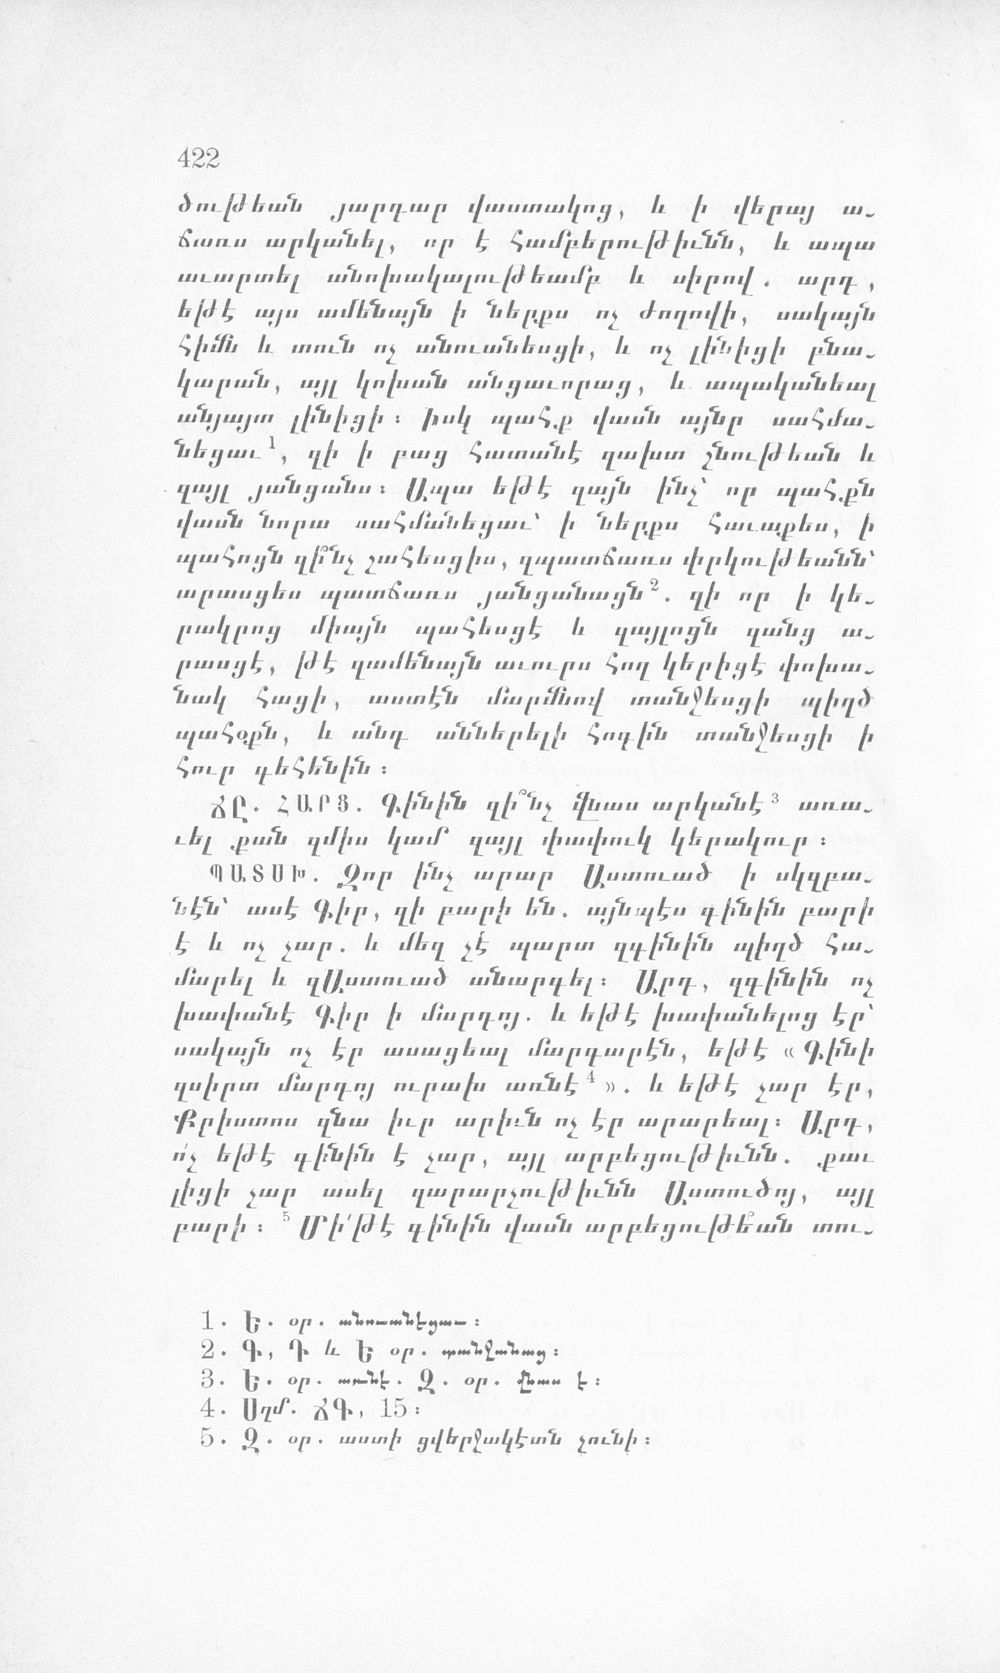 422
ծութեան յարդար վաստակոց, և ի վերայ ա֊
ճառս արկանել, որ է համբերութիւնն, և ապա
աւարտել անոխակալութեամբ և սիրով. արդ,
եթէ այս ամենայն ի ներքս ոչ ժողովի, սակայն
հիմն և տուն ոչ անուանեսցի, և ոչ լինիցի բնա֊
կարան, այլ կոխան անցաւորաց, և ապականեալ
անյայտ լինիցի։ իսկ պահք վասն այնր սահմա֊
նեցաւ¹, զի ի բաց հատանէ զախտ շնութեան և
զայլ յանցանս։ Ապա եթէ զայն ինչ՝ որ պահքն
վասն նորա սահմանեցաւ՝ ի ներքս հաւաքես, ի
պահոցն զի՞նչ շահեսցիս, զպատճառս փրկութեանն՝
արասցես պատճառս յանցանացն². զի որ ի կե֊
րակրոց միայն պահեսցէ և զայլոցն զանց ա֊
րասցէ, թէ զամենայն աւուրս հող կերիցէ փոխա֊
նակ հացի, աստէն մարմնով տանջեսցի պիղծ
պահօքն, և անդ աններելի հոգին տանջեսցի ի
հուր գեհենին։
ՃԸ. ՀԱՐՑ. Գինին զի՞նչ վնաս արկանէ³ առա֊
ւել քան զմիս կամ զայլ փափուկ կերակուր։
ՊԱՏՍԽ. Զոր ինչ արար Աստուած ի սկզբա֊
նէն՝ ասէ Գիր, զի բարի են. այնպէս գինին բարի
է և ոչ չար. և մեզ չէ պարտ զգինին պիղծ հա֊
մարել և զԱստուած անարգել։ Արդ, զգինին ոչ
խափանէ Գիր ի մարդոյ. և եթէ խափանելոց էր՝
սակայն ոչ էր ասացեալ մարգարէն, եթէ «Գինի
զսիրտ մարդոյ ուրախ առնէ⁴». և եթէ չար էր,
Քրիստոս զնա իւր արիւն ոչ էր արարեալ։ Արդ,
ո՛չ եթէ գինին է չար, այլ արբեցութիւնն. քաւ
լիցի չար ասել զարարչութիւնն Աստուծոյ, այլ
բարի։ ⁵ Մի՛թէ գինին վասն արբեցութե՞ան տու֊
1. Ե. օր. անուանեցաւ։
2. Գ, Դ և Ե օր. պանջանաց։
3. Ե. օր. առնէ. Զ. օր. վնաս է։
4. Սղմ. ՃԳ, 15։
5. Զ. օր. աստի ցվերջակէտն չունի։